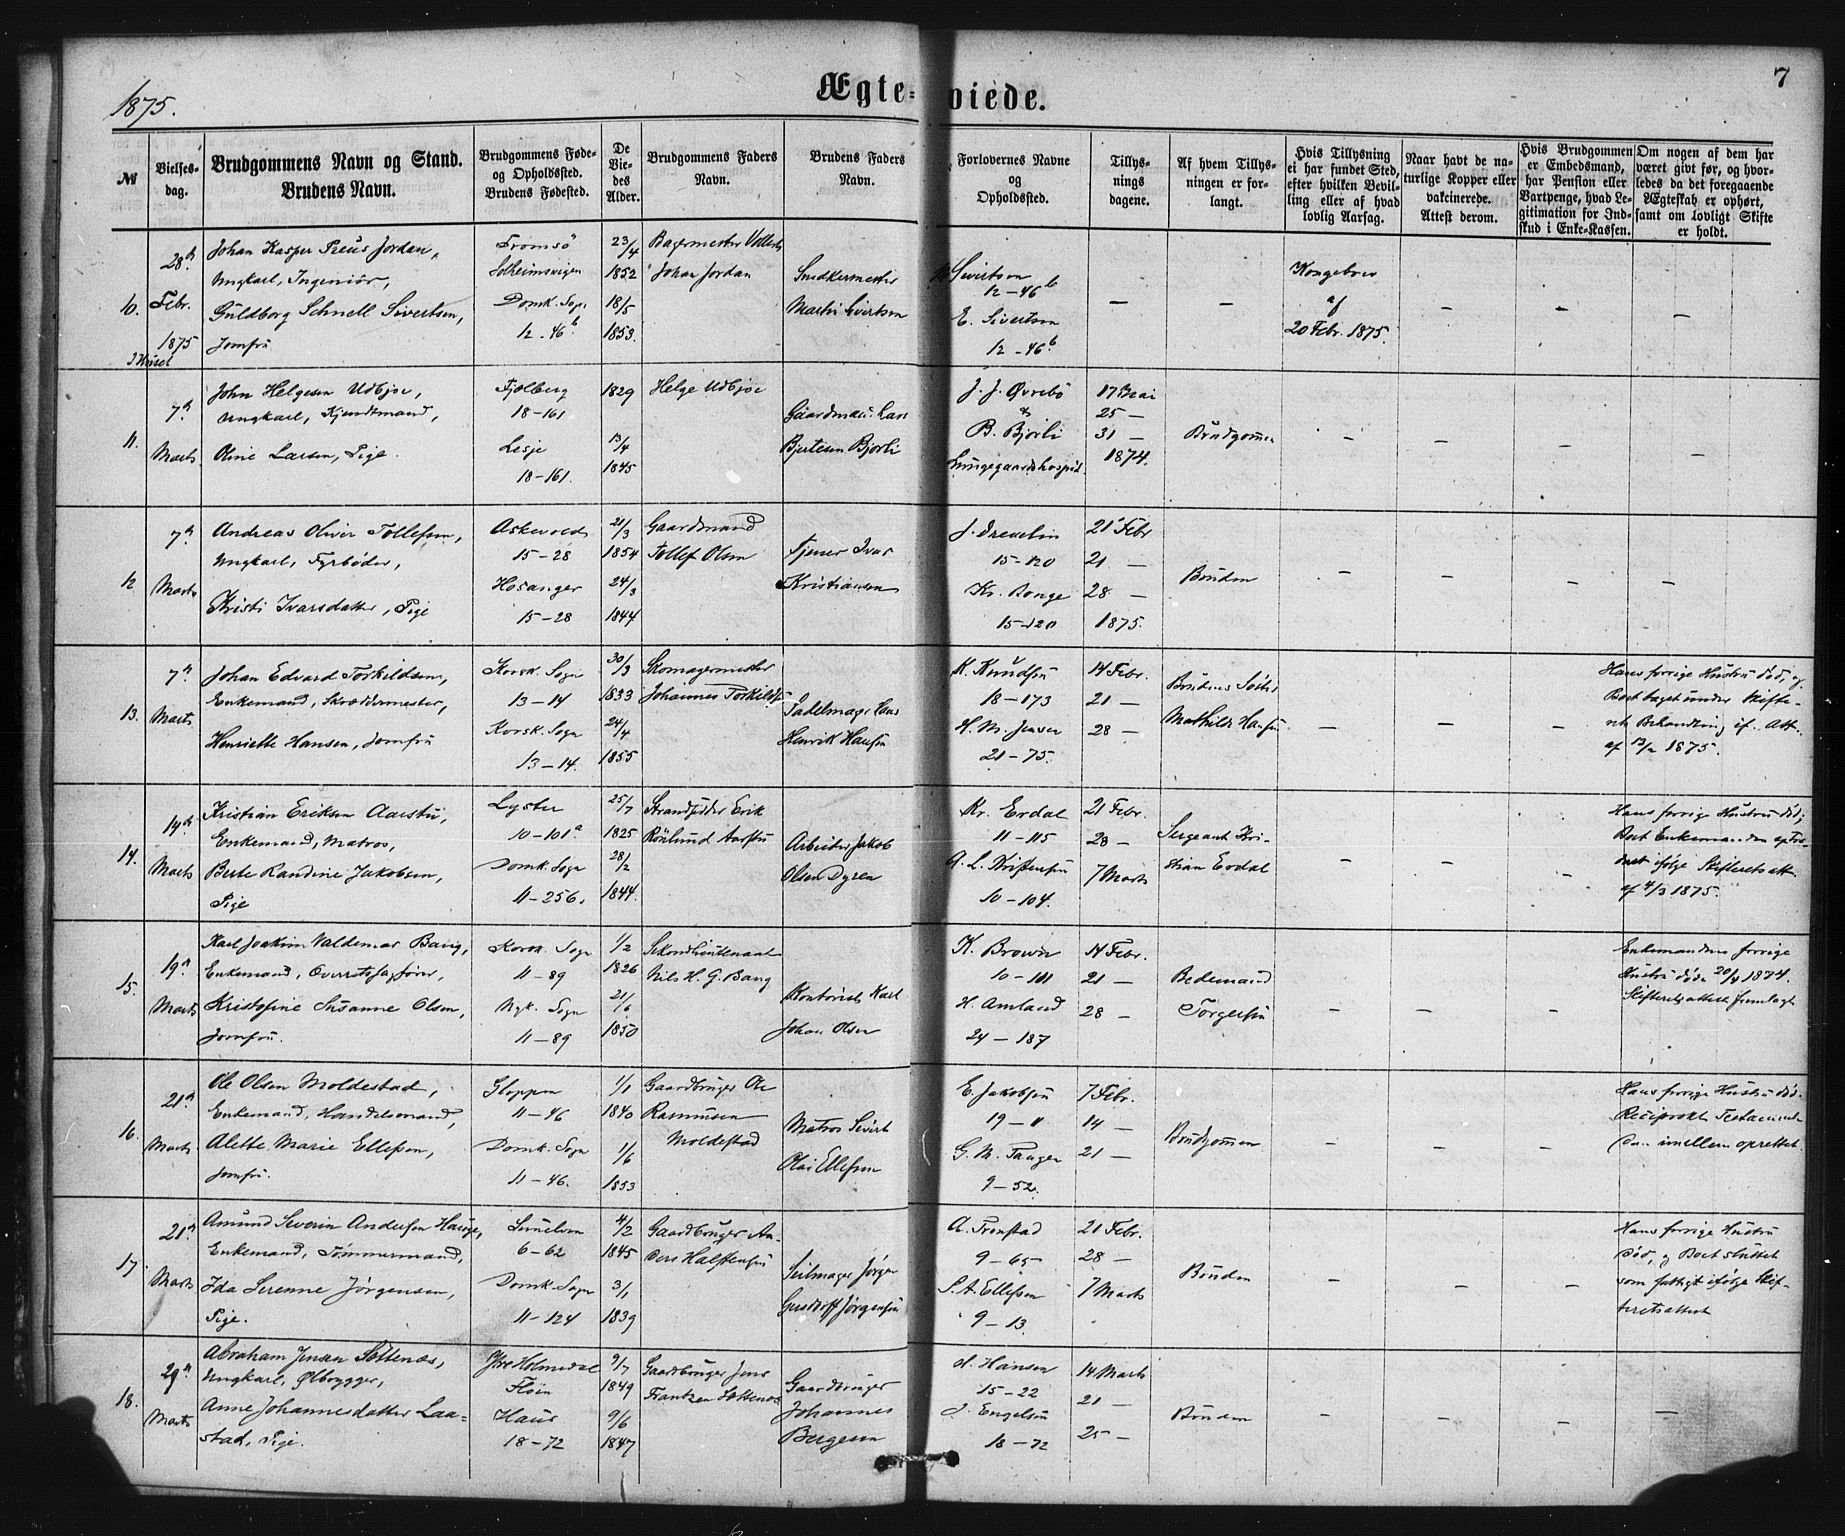 1875.
Ægte-
viede.
7
№
Vielses-
dag.
Brudgommens Navn og Stand.
Brudens Navn.
Brudgommens Føde-
og Opholdsted.
Brudens Fødested.
De
Vie-
des
Alder.
Brudgommens Faders
Navn.
Brudens Faders
Navn.
Forlovernes Navne
og
Opholdsted.
Tillys-
nings
dagene.
Af hvem Tillys-
ningen er for-
langt.
Hvis Tillysning
ei har fundet Sted,
efter hvilken Bevil-
ling eller af hvad
lovlig Aarsag.
Naar havt de na-
turlige Kopper eller
vakcinerede.
Attest derom.
Hvis Brudgommen
er Embedsmand,
har Pension eller
Vartpenge, hvad Le-
gitimation for Ind-
skud i Enke-Kassen.
Om nogen af dem har
været givt før, og hvor-
ledes da det foregaaende
Ægteskab er ophørt,
samt om lovligt Skifte
er holdt.
10.
28de
Febr.
1875
I Huset
Johan Kasper Preus Jordan,
Ungkarl, Ingeniør,
Guldborg Schnell Sivertsen,
Jomfru
Tromsø
Solheimsvigen
Domk. Sogn
12-46b
23/4
1852
18/5
1853.
Bagermester
Johan Jordan
Snedkermester
Martin Sivertsen
Sivertsen
12-46b
E. Sivertsen
12-46b
—
—
Kongebrev
af
20 Febr. 1875.
—
—
—
11.
7de
Marts
John Helgesen Udbjoe,
Ungkarl, Kjendtmand,
Oline Larsen, Pige.
Fjelberg
18-161
Lesje
18-161.
1829
13/4
1845
Helge Udbjoe
Gaardmand Lars
Bjørli
J. J. Øvrebö
&
B. Bjørli
Lungegaardshospit.
17 Mai
25 —
31 —
1874.
Brudgommen
—
—
—
—
12
7de
Marts
Andreas Oliver Tollefsen,
Ungkarl, Fyrbøder,
Kristi Ivarsdatter, Pige
Askevold
15-28
Hosanger
15-28
21/3
1854
24/3
1844
Gaardmand
Tollef Olsen
Tjener Ivar
Kristiansen
J. Drevelin
15-120
Kr. Bonge
15-120
21 Febr
21 —
28 —
1875.
Bruden
—
—
—
—
13.
7de
Marts
Johan Edvard Torkildsen,
Enkemand, Skræddermester,
Henriette Hansen, Jomfru
Korsk. Sogn
13-14
Korsk. Sogn
13-14.
30/3
1833
24/4
1855
Skomagermester
Johannes Torkilds
Sadelmager Hans
Henrik Hansen
K. Knudsen
18-173
H. M. Jensen
21-75.
14 Febr.
21 —
28 —
Brudens Søster
Mathilde Hansen
—
—
—
Hans forrige Hustru død, og
Boet taget under Skifte-
rets Behandling if. Att.
af 13/2 1875.
14.
14de
Marts
Kristian Eriksen Aarstu,
Enkemand, Matros,
Berte Randine Jakobsen,
Pige
Lyster
10-101a
Domk. Sogn
11-256.
25/7
1825
28/2
1844.
Strandsidder Erik
Arbeider Jakob
Olsen Dyren
Kr. Erdal
11-115
10-104.
21 Febr.
28 —
7 Marts
Sergeant Kri-
stian Erdal
—
—
—
Hans forrige Hustru død,
Boet Enkemanden
ifølge Skifteretsatt.
af 4/3 1875.
15.
19de
Marts
Karl Joakim Valdemar Bang,
Enkemand, Overretssagfører,
Kristofine Susanne Olsen,
Jomfru.
Korsk. Sogn
11-89
Nyk. Sogn
11-89
1/2
1826
21/6
1850
Sekondlieutenant
Nils H. G. Bang
Kontorist Karl
Johan Olsen
K. Brown
10-111
H. Amland
24-187
14 Febr.
21 —
28 —
Bedemand
Torgersen
—
—
—
Enkemandens forrige
Hustru døde 20/4 1874.
Skifterets attest fremlagt
16.
21de
Marts
Ole Olsen Moldestad,
Enkemand, Handelsmand,
Alette Marie Ellefsen,
Jomfru.
Gloppen
11-46
Domk. Sogn
11-46.
1/1
1840
1/6
1853
Gaardbruger Ole
Rasmussen
Moldestad
Matros Sivert
Olai Ellefsen
E. Jakobsen
19-11
G. M. Tanger
9-52.
7 Febr.
14 —
21 —
Brudgommen
—
—
—
Hans forrige Hustru død.
Reciprokt Testamente
dem imellem oprettet.
17.
21de
Marts
Amund Severin Andersen Hauge,
Enkemand, Tømmermand,
Ida Serenne Jørgensen,
Pige.
Sunelven
6-62
Domk. Sogn
11-124
4/2
1845
3/1
1839
Gaardbruger An-
ders Halstensen
Seilmager Jørgen
Gersdorff Jørgensen
A. Tronstad
9-65
S. A. Ellefsen
9-13.
21 Febr.
28 —
7 Marts
Bruden
—
—
—
Hans forrige Hustru
død, og Boet sluttet
som fattigt ifølge Skif-
teretsattest
18.
29de
Marts
Abraham Jensen Sættenæs,
Ungkarl, Ølbrygger,
Anne Johannesdatter Laa-
stad, Pige.
Ytre Holmedal
Fløien
Haus
18-72
9/7
1849
9/6
1847
Gaardbruger Jens
Frantzen Sættenæs
Gaardbruger
Johannes
Bergesen
A. Hansen
15-22
J. Engelsen
18-72
14 Marts
21 —
25 —
Bruden
—
—
—
—